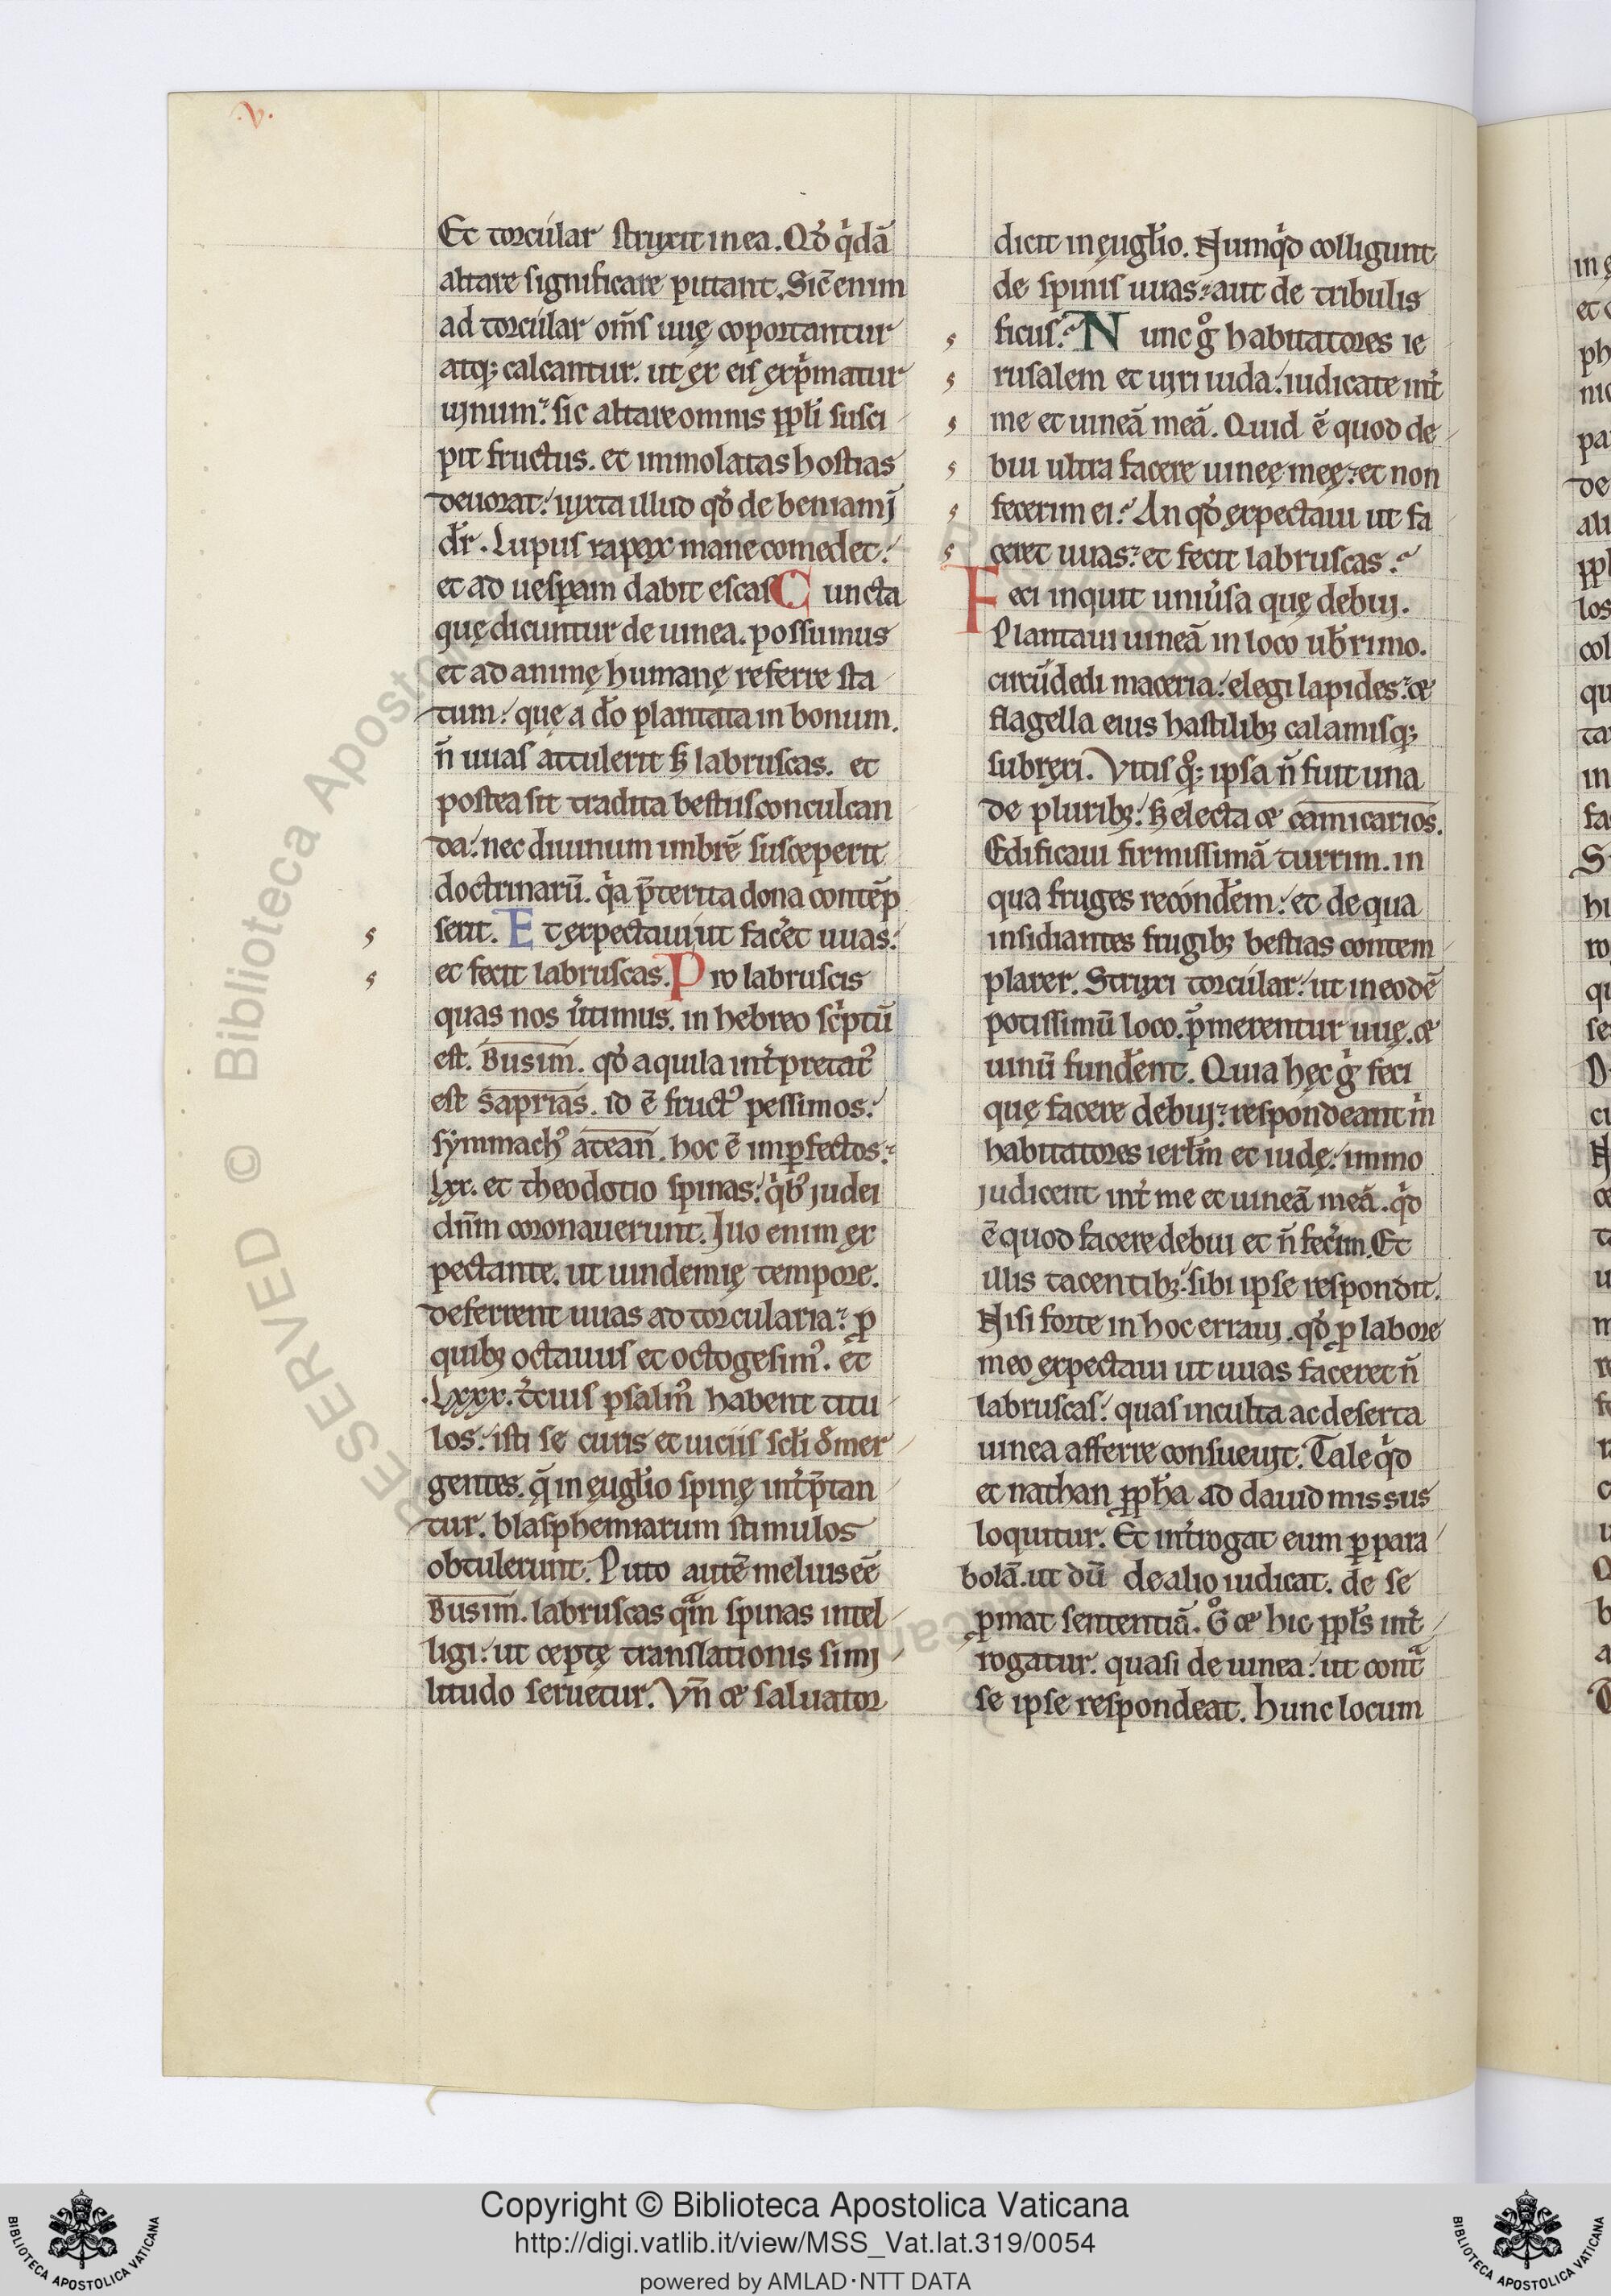 .v.
Et torcular struxit in ea. Qđ q̇dā
altare significare putant. Sic̄ enim
ad torcular om̄s uuę coportantur
atq; calcantur. ut ex eis exp̓matur
uinum: sic altare omnis ꝓpl̓i susci
pit fructus. et immolatas hostias
deuorat: iuxta illud qđ de beniamī
dr̄. Lupus rapax mane comedet:
et ad uesꝑam dabit escas C uncta
quę dicuntur de uinea. possumus
et ad animę humanę referre sta
tum: quę a dō plantata in bonum.
n̄ uuas attulerit ꝫ labruscas. et
postea sit tradita bestiis conculcan
da: nec diuinum imbrē susceperit
doctrinarū. q̓a p̄terita dona contēp
serit. E t expectaui ut fac̓et uuas:
et fecit labruscas. P ro labruscis
quas nos u̓timus. in hebreo sc̓ptū
est. Busim. qđ aquila int̓pretat᷒
est saprias. id ē fruct᷒ pessimos:
symmach᷒ atean. hoc ē imꝑfectos:
Lxx. et theodotio spinas: q̓b᷒ judei
dn̄m coronauerunt. Juo enim ex
pectante. ut uindemię tempore.
deferrent uuas ad torcularia: ꝓ
quib; octauus et octogesim᷒. et
.Lxxx. t̓cius psalm᷒ habent titu
los: isti se curis et uiciis scl̓i dmer
gentes. q̄ in eugl̓io spinę int̓p̄tan
tur. blasphemiarum stimulos
obtulerunt. Puto autē melius eē
Busim. labruscas qm̄ spinas intel
ligi: ut ceptę translationis simi
litudo seruetur. Vn̄ ꝫ saluator
dicit in ęugl̓io. Numq̓d colligunt
de spinis uuas: aut de tribulis
ficus? N unc g̊ habitatores ie
rusalem et uiri iuda: iudicate int̓
me et uineā meā. Quid ē quod de
bui ultra facere uineę meę: et non
fecerim ei? An qđ expectaui ut fa
ceret uuas: et fecit labruscas?
F eci inquit uniu̓sa quę debui.
Plantaui uineā in loco ub̓rimo.
circūdedi maceria: elegi lapides: ꝫ
flagella eius hastilib; calamisq;
subręxi. Vitis q̊; ipsa n̄ fuit una
de plurib;: ꝫ electa ꝫ camicarios.
Edificaui firmissimā turrim. in
qua fruges recond̓em: et de qua
insidiantes frugib; bestias contem
plarer. Struxi torcular: ut in eodē
potissimū loco. p̄merentur uuę. ꝫ
uinū fund̓ent. Quia hęc g̓ feci
quę facere debui: respondeant m̓
habitatores ierl̓m et iudę: immo
judicent int̓ me et uineā meā. q̓d
ē quod facere debui et n̄ fec̓im. Et
illis tacentib;. sibi ipse respondit.
Nisi forte in hoc erraui. qđ ꝓ labore
meo expectaui ut uuas faceret n̄
labruscas: quas inculta ac deserta
uinea afferre consueuit. Tale q̓d
et nathan ꝓph̓a ad dauid missus
loquitur. Et int̓rogat eum ꝑ para
bolā. ut dū de alio iudicat. de se
ꝓmat sententiā. G̊ ꝫ hic ꝓpl̓s int̓
rogatur. quasi de uinea: ut contᷓ
se ipse respondeat. hunc locum
RESERVED © Biblioteca Apostolica Vaticana
Copyright © Biblioteca Apostolica Vaticana
http://digi.vatlib.it/view/MSS_Vat.lat.319/0054
powered by AMLAD·NTT DATA
BIBLIOTECA APOSTOLICA VATICANA
BIBLIOTECA APOSTOLICA VATICANA